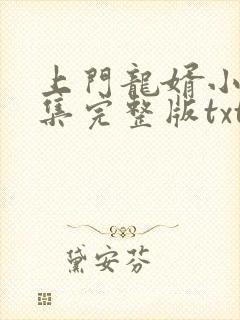 上門龍婿小
集完整版txt
黛安芬